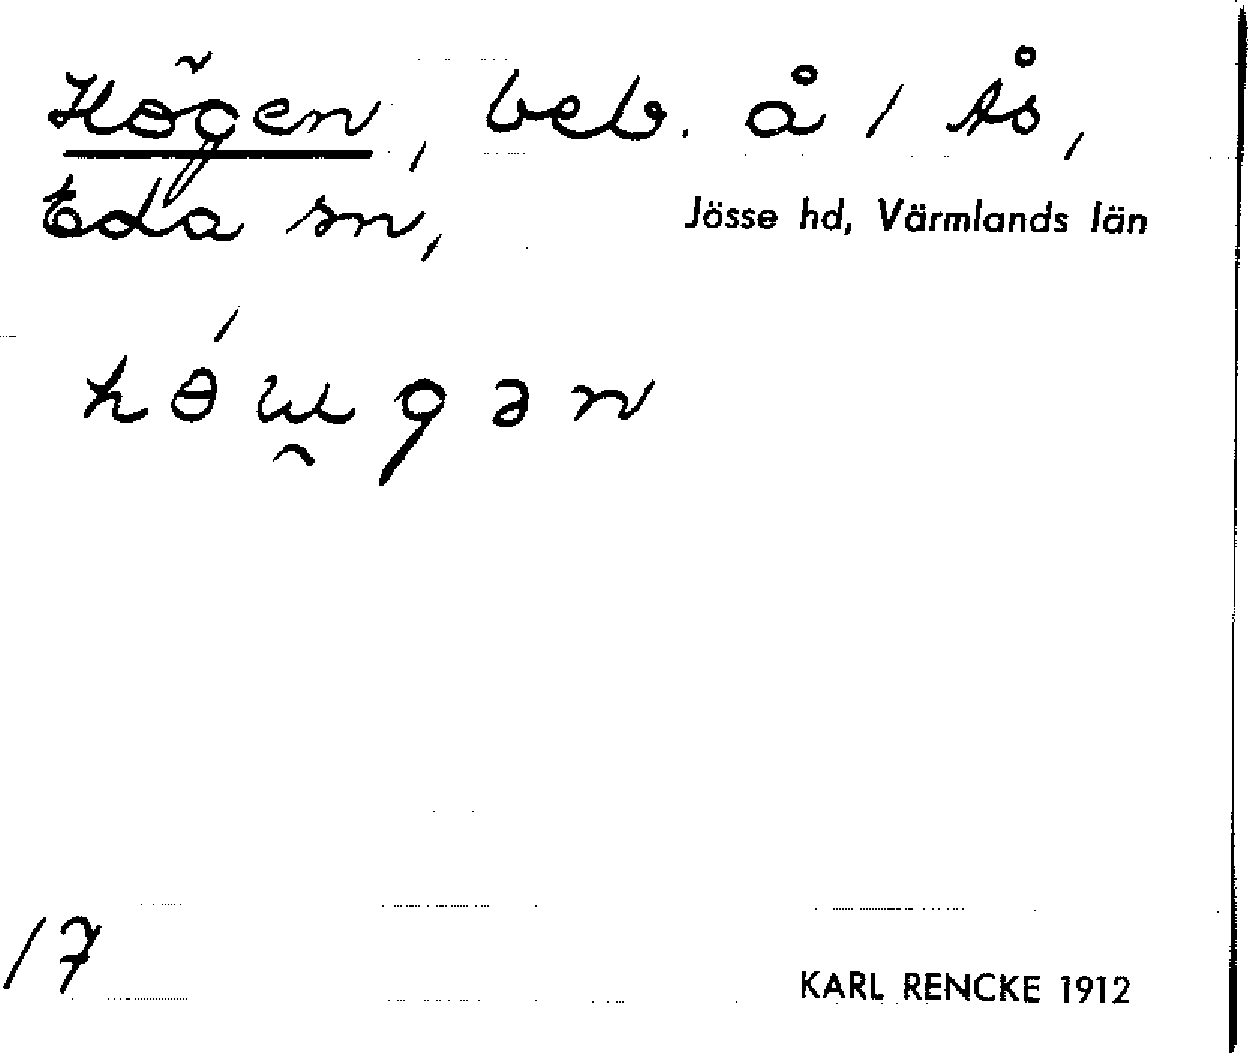 Högen, beb. å 1 Ås,
Eda sn, Jösse hd, Värmlands län
hөu̯gən
17
KARL RENCKE 1912